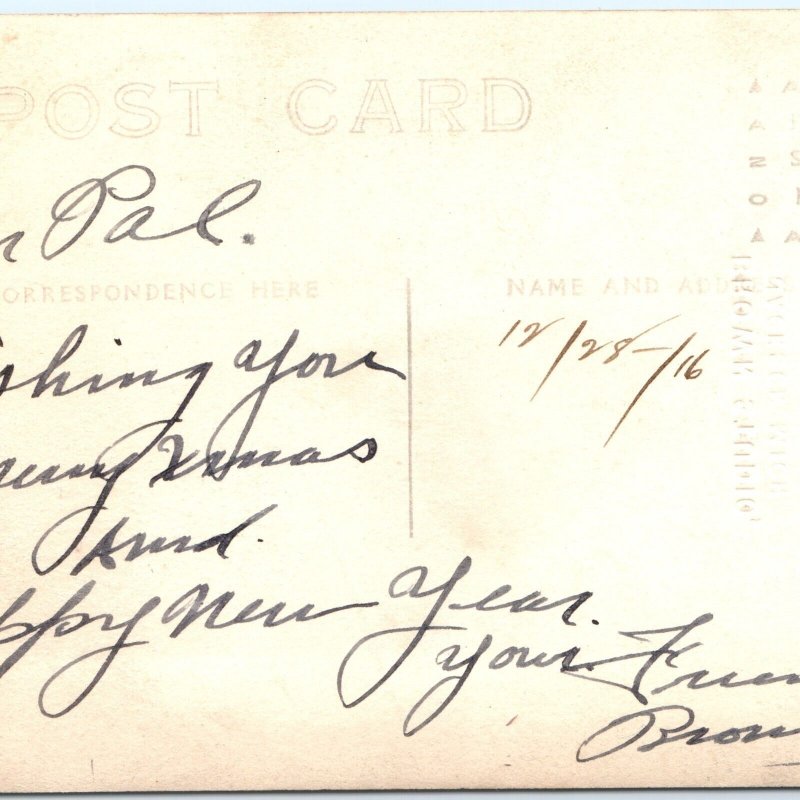 POST CARD
Pal.
ORRESPONDENCE HERE
NAME AND ADD
12/28-/16
shing you
Xmas
And.
ppy New Year.
your Frien
Brow